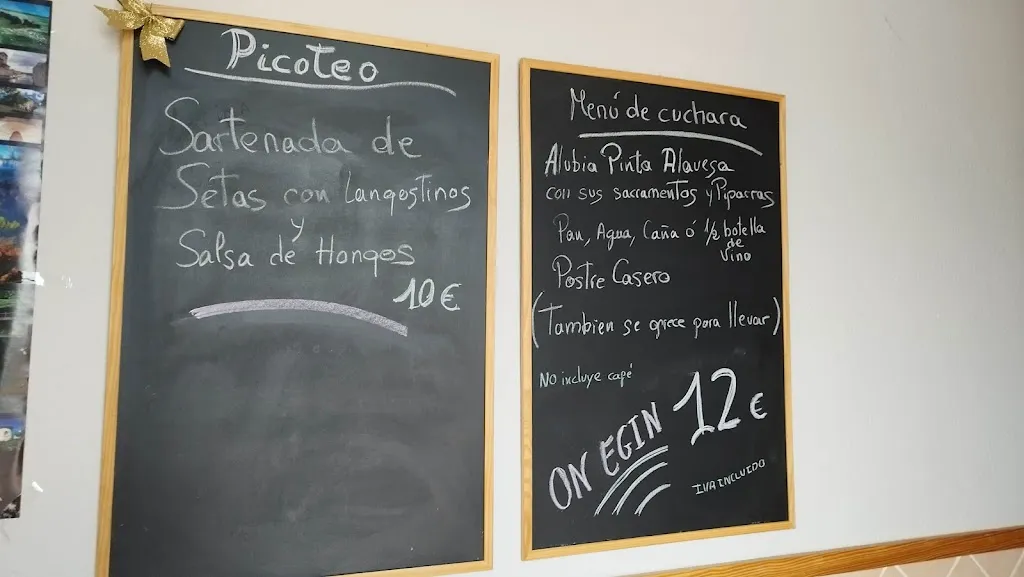 Picoteo
Sartenada de
Setas con Langostinos
y
Salsa de Hongos
10 €
Menú de cuchara
Alubia Pinta Alavesa
con sus sacramentos y Piparras
Pan, Agua, Caña ó 1/2 botella
de
vino
Postre Casero
(Tambien se oprece para llevar)
No incluye capé
ON EGIN 12 €
IVA INCLUIDO